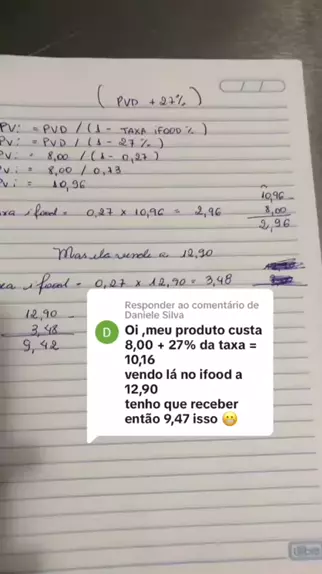 ( PVD + 27% )
PVi = PVD / (1 - TAXA iFOOD %)
PVi = PVD / (1 - 27%)
PVi = 8,00 / (1 - 0,27)
Vi = 8,00 / 0,73
Vi = 10,96
xa ifood = 0,27 x 10,96 = 2,96
10,96
8,00
2,96
Mas ela vende a 12,90
xa ifood = 0,27 x 12,90 = 3,48
12,90
3,48
9,42
Responder ao comentário de
Daniele Silva
D
Oi ,meu produto custa
8,00 + 27% da taxa =
10,16
vendo lá no ifood a
12,90
tenho que receber
então 9,47 isso 😬